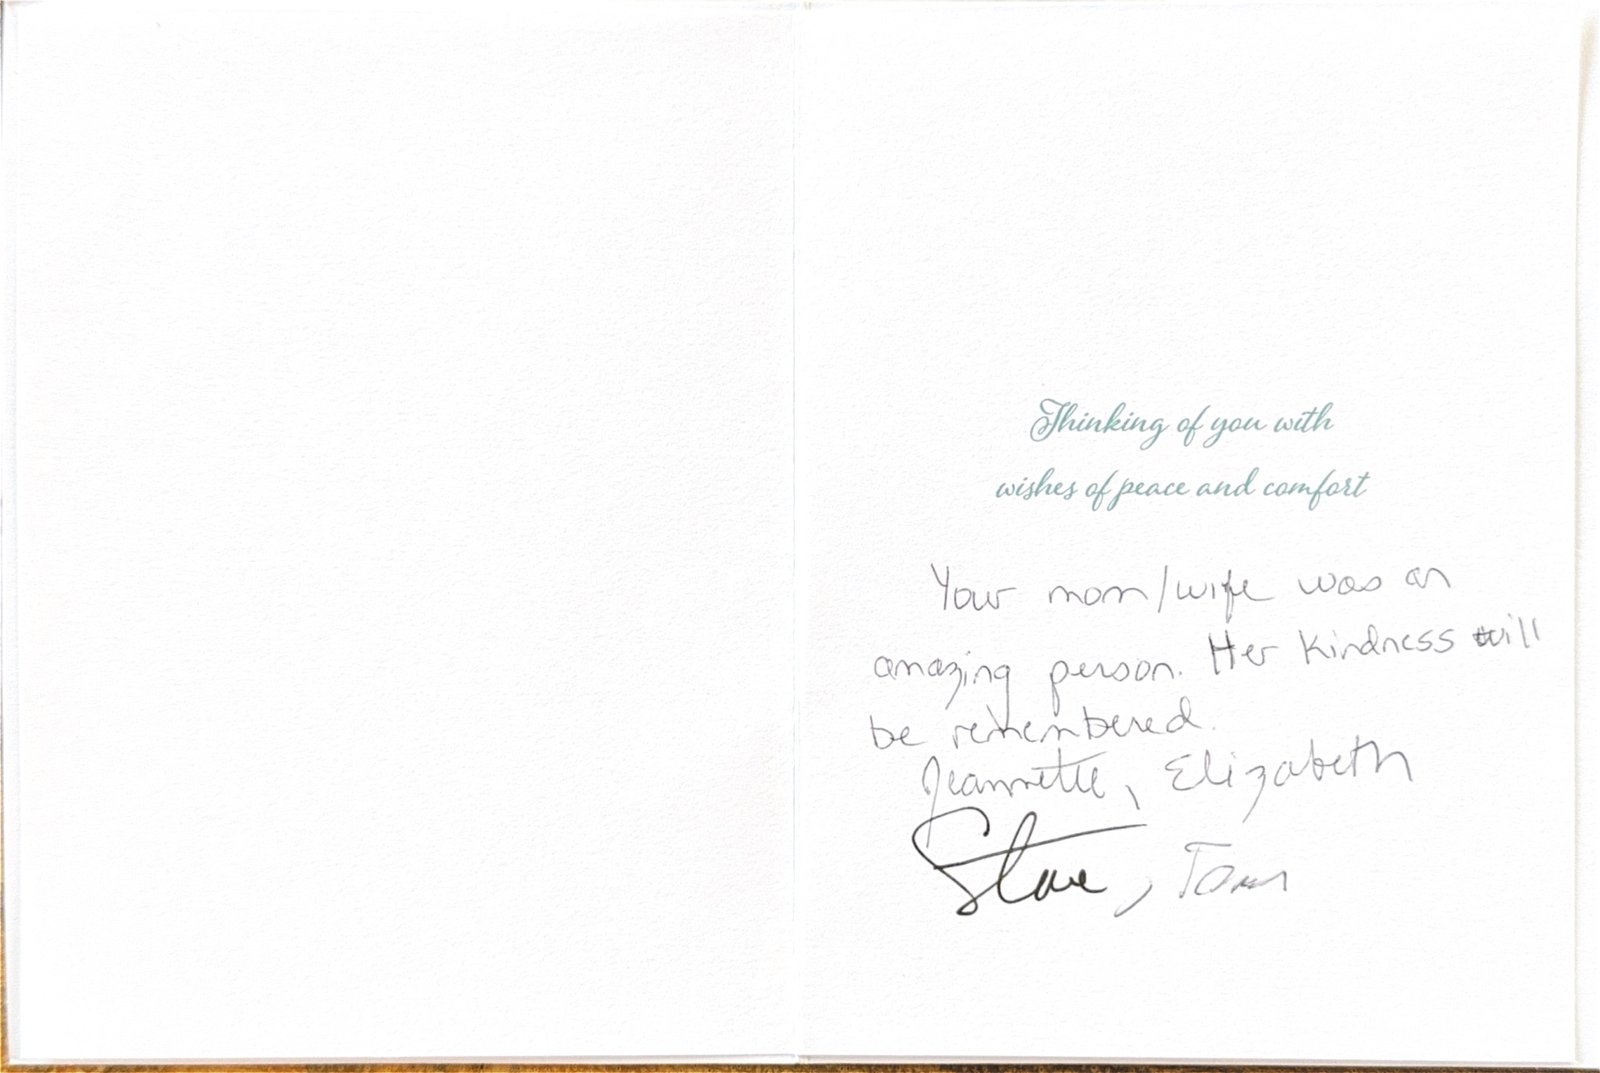 Thinking of you with
wishes of peace and comfort
Your mom/wife was an
amazing person. Her kindness will
be remembered.
Jeannette, Elizabeth
Steve, Tom